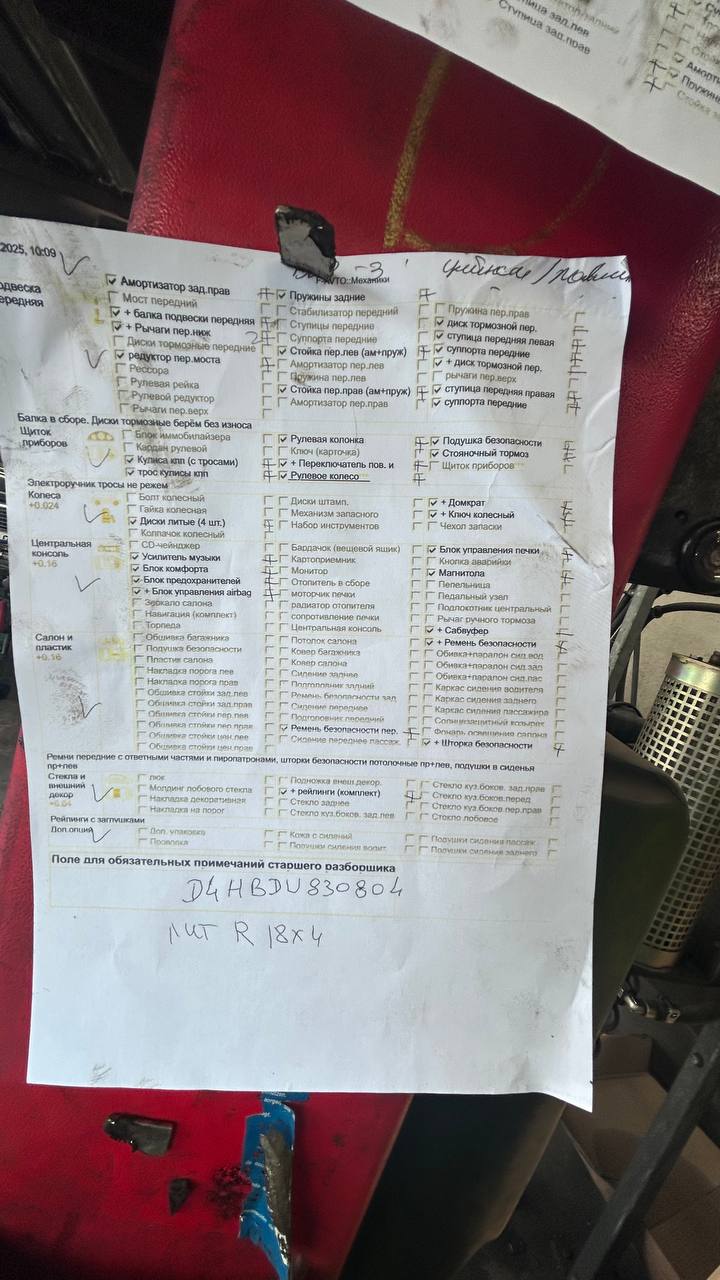 Ступица зад.лев
Ступица зад.прав
Аморти
Пружин
2025, 10:09
Механики
Амортизатор зад.прав
Пружины задние
Мост передний
Стабилизатор передний
Пружина пер.прав
+ балка подвески передняя
Ступицы передние
диск тормозной пер.
+ Рычаги пер.ниж
Суппорта передние
ступица передняя левая
Диски тормозные передние
Стойка пер.лев (ам+пруж)
суппорта передние
редуктор пер.моста
Амортизатор пер.лев
+ диск тормозной пер.
Рессора
Пружина пер.лев
рычаги пер.верх
Рулевая рейка
Стойка пер.прав (ам+пруж)
ступица передняя правая
Рулевой редуктор
Амортизатор пер.прав
суппорта передние
Рычаги пер.верх
Балка в сборе. Диски тормозные берём без износа
Щиток приборов
Блок иммобилайзера
Рулевая колонка
Подушка безопасности
Кардан рулевой
Ключ (карточка)
Стояночный тормоз
Кулиса кпп (с тросами)
+ Переключатель пов. и
Щиток приборов
трос кулисы кпп
Рулевое колесо
Электроручник тросы не режем
Колеса
+0.024
Болт колесный
Диски штамп.
+ Домкрат
Гайка колесная
Механизм запасного
+ Ключ колесный
Диски литые (4 шт.)
Набор инструментов
Чехол запаски
Колпачок колесный
Центральная консоль
+0.16
CD-чейнджер
Бардачок (вещевой ящик)
Блок управления печки
Усилитель музыки
Картоприемник
Кнопка аварийки
Блок комфорта
Монитор
Магнитола
Блок предохранителей
Отопитель в сборе
Пепельница
+ Блок управления airbag
моторчик печки
Педальный узел
Зеркало салона
радиатор отопителя
Подлокотник центральный
Навигация (комплект)
сопротивление печки
Рычаг ручного тормоза
Торпеда
Центральная консоль
+ Сабвуфер
Салон и пластик
+0.16
Обшивка багажника
Потолок салона
+ Ремень безопасности
Подушка безопасности
Ковер багажника
Обивка+паралон сид.вод
Пластик салона
Ковер салона
Обивка+паралон сид.зад
Накладка порога лев
Сидение заднее
Обивка+паралон сид.пас
Накладка порога прав
Подголовник задний
Каркас сидения водителя
Обшивка стойки зад.лев
Ремень безопасности зад
Каркас сидения заднего
Обшивка стойки зад.прав
Сидение переднее
Каркас сидения пассажира
Обшивка стойки пер.лев
Подголовник передний
Солнцезащитный козырек
Обшивка стойки пер.прав
Ремень безопасности пер.
Фонарь освещения салона
Обшивка стойки цен.лев
Сидение переднее пассаж.
+ Шторка безопасности
Обшивка стойки цен.прав
Ремни передние с ответными частями и пиропатронами, шторки безопасности потолочные пр+лев, подушки в сиденья
пр+лев
Стекла и внешний декор
люк
Подножка внеш.декор.
Стекло куз.боков. зад.прав
Молдинг лобового стекла
+ рейлинги (комплект)
Стекло куз.боков.перед
Накладка декоративная
Стекло заднее
Стекло куз.боков.пер.прав
Накладка на порог
Стекло куз.боков. зад.лев
Стекло лобовое
Рейлинги с заглушками
Доп.опции
Доп. упаковка
Кожа с сидений
Подушки сидения пассаж.
Проводка
Подушки сидения водит
Подушки сидения заднего
Поле для обязательных примечаний старшего разборщика
D4HBDU830804
лит R 18x4